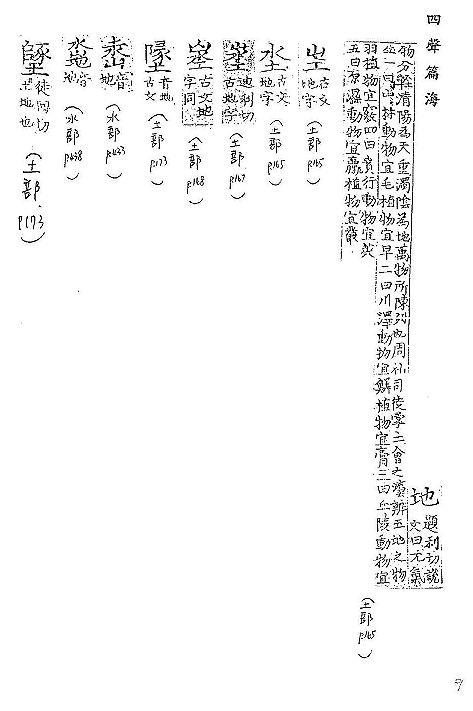 四聲篇海
地 題利切說
文曰元氣
初分輕清陽為天重濁陰為地萬物所陳列也周礼司徒掌土會之灋辨五地之物
一曰山林動物宜毛植物宜早二曰川澤動物宜鱗植物宜膏三曰丘陵動物宜
羽植物宜覈四曰賁行動物宜莢
五曰原濕動物宜羸植物宜叢
(土部 p165)
古文地字 (土部 p165)
坔 古文地字 (土部 p165)
迪利切古地字 (土部 p167)
埊 古文地字同 (土部 p168)
墬 音地古文 (土部 p173)
音地 (水部 p433)
音地 (水部 p438)
徒四切土地也 (土部 p173)
9